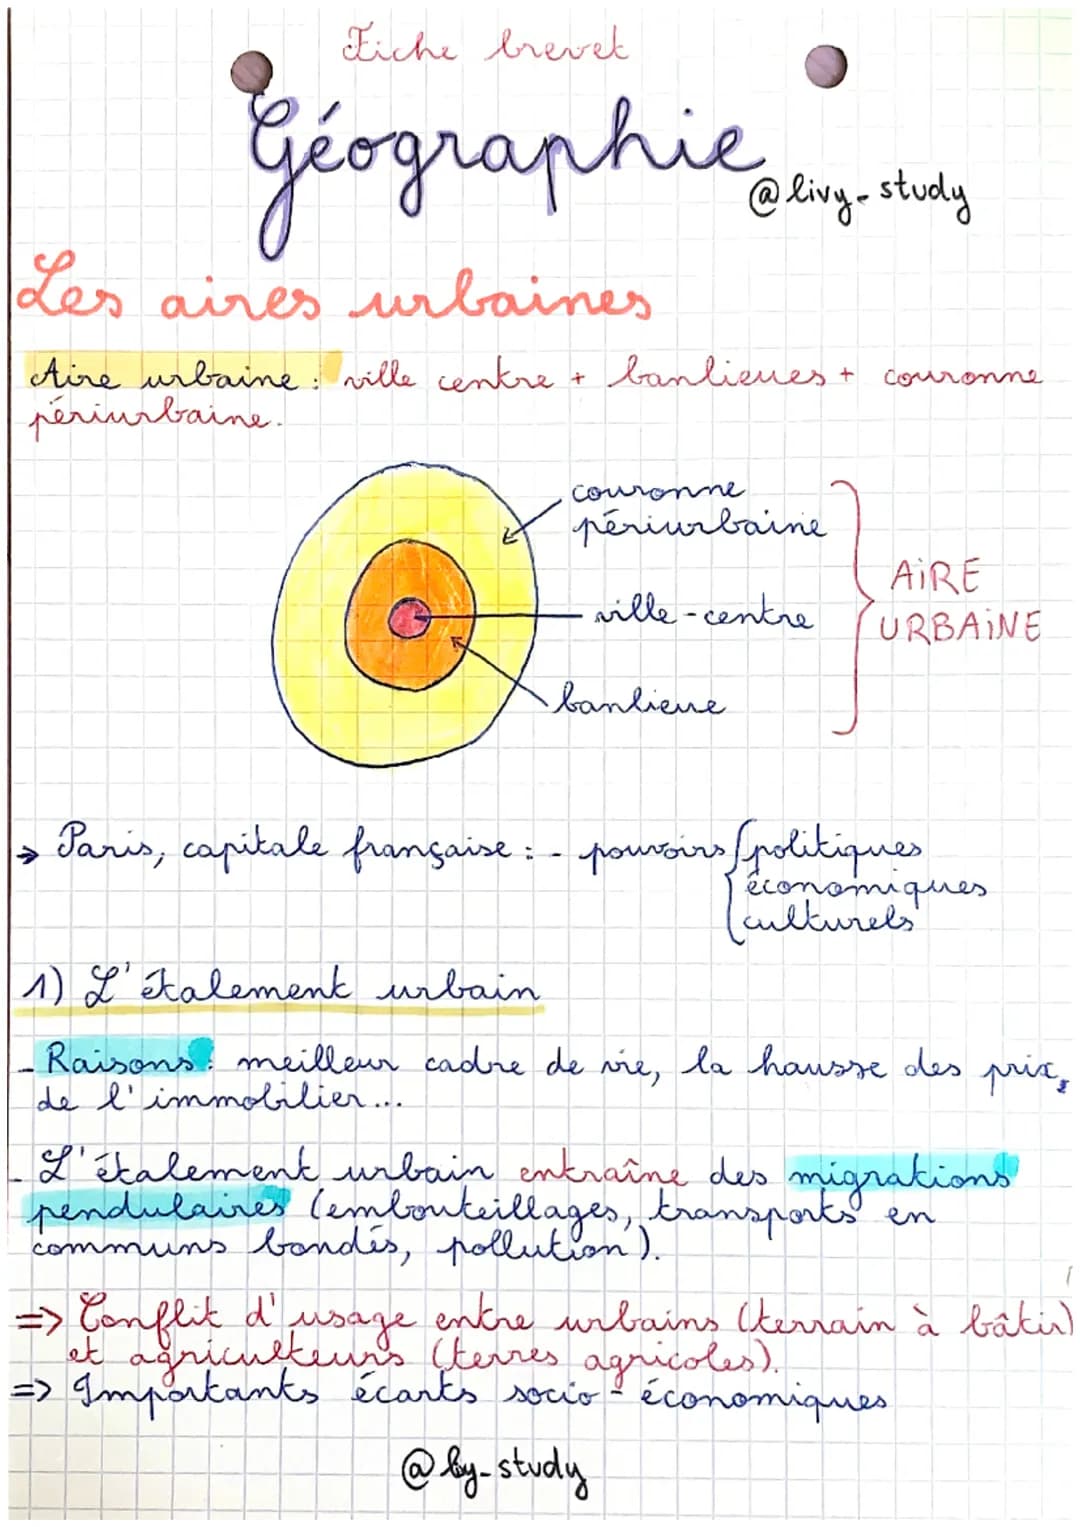 Fiche brevet
Géographie
@livy_study
Les aires urbaines
Aire urbaine : ville centre + banlieues + couronne
périurbaine.
couronne
périurbaine
ville-centre
banlieue
AIRE
URBAINE
→ Paris, capitale française : - pouvoirs { politiques
économiques
culturels
1) L'étalement urbain
- Raisons : meilleur cadre de vie, la hausse des prix
de l'immobilier...
- L'étalement urbain entraîne des migrations
pendulaires (embouteillages, transports en
communs bondés, pollution).
=> Conflit d'usage entre urbains (terrain à bâtir)
et agriculteurs (terres agricoles).
=> Importants écarts socio-économiques
@by_study